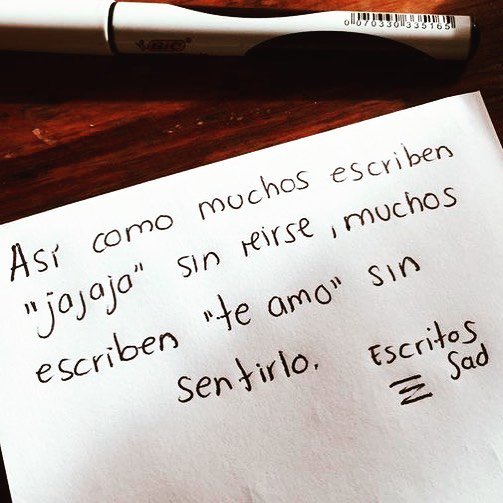 BIC
0 070330 335165
Así como muchos escriben
"jajaja" sin reirse, muchos
escriben "te amo" sin
sentirlo.
Escritos
Sad